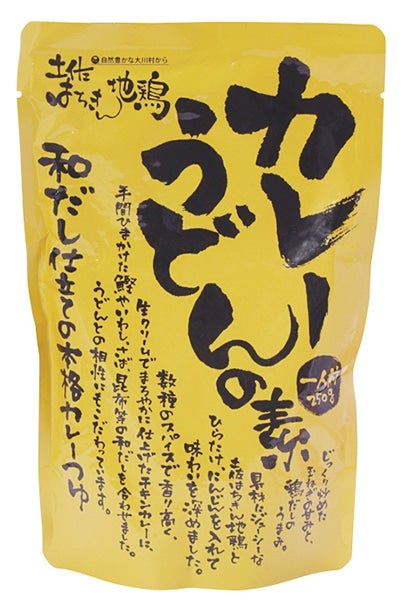 自然豊かな大川村から
土佐
はちきん地鶏
カレー
うどんの素
一人前
250g
和だし仕立ての本格カレーつゆ
じっくり炒めた
玉ねぎの甘みと、
鶏だしの
うまみ。
具材にジューシーな
土佐はちきん地鶏と
ひらたけ、にんじんを入れて
味わいを深めました。
数種のスパイスで香り高く、
生クリームでまろやかに仕上げたチキンカレーに、
手間ひまかけた鰹やいわし、さば、昆布等の和だしを合わせました。
うどんとの相性にもこだわっています。